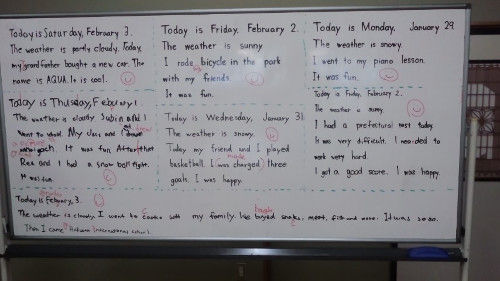 Today is Saturday, February 3.
The weather is partly cloudy. Today,
my grandfather bought a new car. The
name is AQUA. It is cool.
Today is Friday, February 2.
The weather is sunny.
I rode bicycle in the park
with my friends.
It was fun.
Today is Monday, January 29.
The weather is snowy.
I went to my piano lesson.
It was fun.
Today is Thursday, February 1
The weather is cloudy. Subin and I
went to My class and I
It was fun. After that
Rea and I had a snow ball fight.
It was fun.
Today is Wednesday, January 31.
The weather is snowy.
Today my friend and I played
basketball. I was charged three
made
goals. I was happy.
Today is Friday, February 2.
The weather is sunny.
I had a prefectural test today.
It was very difficult. I needed to
work very hard.
I got a good score. I was happy.
Today is February, 3.
The weather is cloudy. I went to Costco with my family. We buyed snacks, meat, fish and more. It was so so.
bought
Then I came International school.